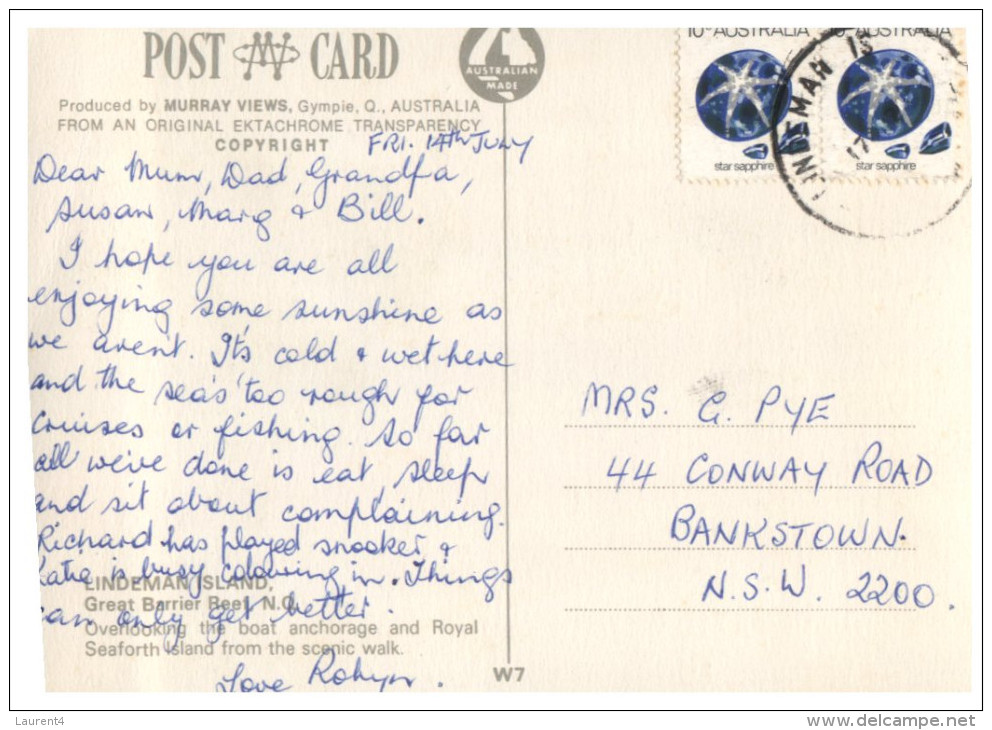 POST CARD
AUSTRALIAN
MADE
Produced by MURRAY VIEWS, Gympie, Q., AUSTRALIA
FROM AN ORIGINAL EKTACHROME TRANSPARENCY
COPYRIGHT
FRI. 14th JULY
Dear Mum, Dad, Grandfa,
Susan, Marg & Bill.
I hope you are all
enjoying some sunshine as
we aren't. It's cold & wet here
and the sea's too rough for
cruises or fishing. So far
all we've done is eat, sleep
and sit about complaining.
Richard has played snooker &
Katie is busy colouring in. Things
can only get better.
Love Robyn.
LINDEMAN ISLAND,
Great Barrier Reef, N.Q.
Overlooking the boat anchorage and Royal
Seaforth Island from the scenic walk.
W7
10c AUSTRALIA
star sapphire
10c AUSTRALIA
star sapphire
MRS. G. PYE
44 CONWAY ROAD
BANKSTOWN.
N.S.W. 2200.
Laurent4
www.delcampe.net